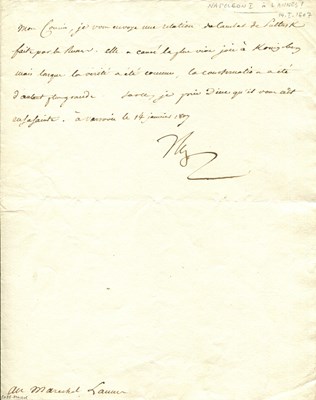 NAPOLEON I à LANNES?
14.I.1807
Mon Cousin, je vous envoye une relation du combat de Pultusk
faite par les Russes. Elle a causé la plus vive joie à Königsberg
mais lorsque la vérité a été connue, la consternation a été
d'autant plus grande. Sur ce, je prie dieu qu'il vous ait
en sa sainte. à varsovie le 14 janvier 1807
Np
au Marechal Lannes